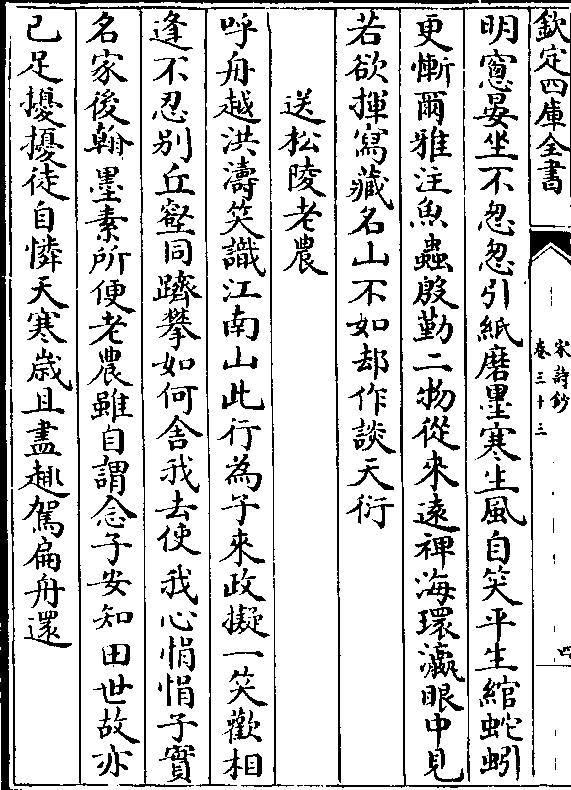 欽定四庫全書
宋詩鈔
卷三十三
四
明窻晏坐不忽忽引紙磨墨寒生風自笑平生綰蛇蚓
更慚爾雅注魚蟲殷勤二物從來遠裨海環瀛眼中見
若欲揮寫藏名山不如却作談天衍
送松陵老農
呼舟越洪濤笑識江南山此行為子來政擬一笑歡相
逢不忍别丘壑同躋攀如何舍我去使我心悁悁子實
名家後翰墨素所便老農雖自謂念子安知田世故亦
已足擾擾徒自憐天寒歳且盡趣駕扁舟還